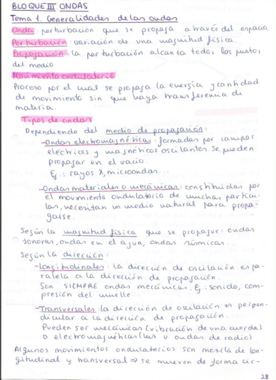 BLOQUE III ONDAS
Tema 1. Generalidades de las ondas
Onda perturbación que se propaga a través del espacio
Perturbación: variación de una magnitud física.
Propagación: la perturbación alcanza todos los puntos
del medio
Movimiento ondulatorio
Proceso por el cual se propaga la energía y cantidad
de movimiento sin que haya transferencia de
materia
Tipos de ondas
Dependiendo del medio de propagación:
- Ondas electromagnéticas: formadas por campos
eléctricos y magnéticos oscilantes. Se pueden
propagar en el vacío
Ej: rayos X, microondas...
- Ondas materiales o mecánicas: constituidas por
el movimiento ondulatorio de muchas partícu-
las, necesitan un medio natural para propa-
garse.
Según la magnitud física que se propague: ondas
sonoras, ondas en el agua, ondas sísmicas...
Según la dirección:
- Longitudinales: la dirección de oscilación es pa-
ralela a la dirección de propagación.
Son SIEMPRE ondas mecánicas. Ej. sonido, com-
presión del muelle
- Transversales: la dirección de oscilación es perpen-
dicular a la dirección de propagación.
Pueden ser mecánicas (vibración de una cuerda)
o electromagnéticas (luz u ondas de radio)
Algunos movimientos ondulatorios son mezcla de lon-
gitudinal y transversal → se mueven de forma cir-